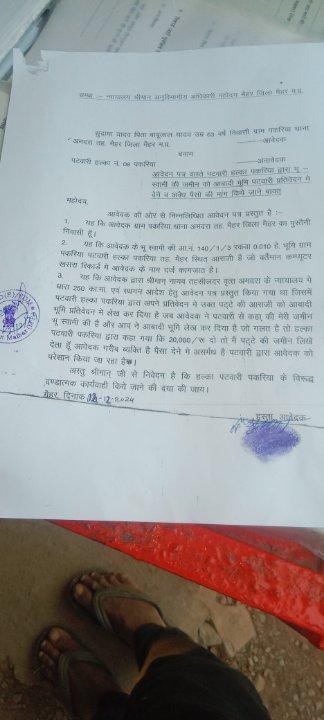 समक्ष :- न्यायालय श्रीमान अनुविभागीय अधिकारी महोदय मैहर जिला मैहर म.प्र.
सुदामा यादव पिता बाबूलाल यादव उम्र 63 वर्ष निवासी ग्राम पकरिया थाना
अमदरा तह. मैहर जिला मैहर म.प्र. ——— आवेदक
बनाम
पटवारी हल्का नं. 08 पकरिया ——— अनावेदक
आवेदन पत्र वास्ते पटवारी हल्का पकरिया द्वारा भू -
स्वामी की जमीन को आबादी भूमि पटवारी प्रतिवेदन मे
देने व अवैध पैसो की मांग किये जाने बावत्
महोदय,
आवेदक की ओर से निम्नलिखित आवेदन पत्र प्रस्तुत है :-
1. यह कि आवेदक ग्राम पकरिया थाना अमदरा तह. मैहर जिला मैहर का पुस्तैनी
निवासी हूँ।
2. यह कि आवेदक के भू स्वामी की आ.नं. 140/1/3 रकवा 0.010 हे. भूमि ग्राम
पकरिया पटवारी हल्का पकरिया तह. मैहर स्थित आराजी है जो वर्तमान कम्प्यूटर
खसरा रिकार्ड मे आवेदक के नाम दर्ज कागजात है।
3. यह कि आवेदक द्वारा श्रीमान् नायब तहसीलदर वृत्त अमदरा के न्यायालय मे
धारा 250 का.मा. एवं स्थगन आदेश हेतु आवेदन पत्र प्रस्तुत किया गया था जिसमें
पटवारी हल्का पकरिया द्वारा अपने प्रतिवेदन मे उक्त पट्टे की आराजी को आबादी
भूमि प्रतिवेदन मे लेख कर दिया है जब आवेदक ने पटवारी से कहा की मेरी जमीन
भू स्वामी की है और आप ने आबादी भूमि लेख कर दिया है जो गलत है तो हल्का
पटवारी पकरिया द्वारा कहा गया कि 20,000/रू दो तो मैं पट्टे की जमीन लिखे
देता हूँ आवेदक गरीब व्यक्ति है पैसा देने मे असमर्थ है पटवारी द्वारा आवेदक को
परेसान किया जा रहा है।
अस्तु श्रीमान् जी से निवेदन है कि हल्का पटवारी पकरिया के विरूद्ध
दण्डात्मक कार्यवाही किये जाने की दया की जाय।
मैहर, दिनांक 18-12-2024
हस्ता. आवेदक